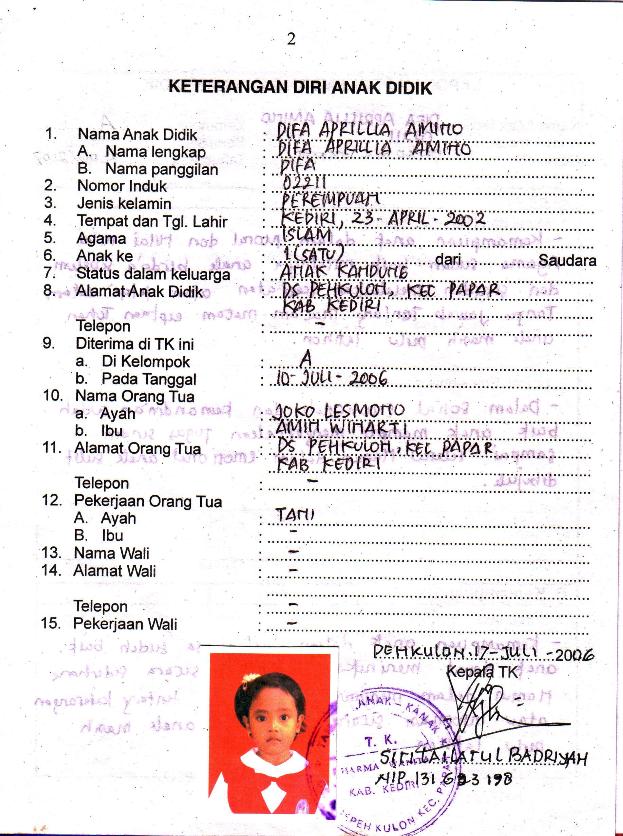 2
KETERANGAN DIRI ANAK DIDIK
1. Nama Anak Didik : DIFA APRILLIA AMINO
A. Nama lengkap : DIFA APRILLIA AMINO
B. Nama panggilan : DIFA
2. Nomor Induk : 02211
3. Jenis kelamin : PEREMPUAN
4. Tempat dan Tgl. Lahir : KEDIRI, 23-APRIL-2002
5. Agama : ISLAM
6. Anak ke : 1 (SATU) dari Saudara
7. Status dalam keluarga : ANAK KANDUNG
8. Alamat Anak Didik : DS PEHKULON, KEC PAPAR
KAB KEDIRI
Telepon : -
9. Diterima di TK ini
a. Di Kelompok : A
b. Pada Tanggal : 10-JULI-2006
10. Nama Orang Tua
a. Ayah : JOKO LESMONO
b. Ibu : AMIN WIHARTI
11. Alamat Orang Tua : DS PEHKULON, KEC PAPAR
KAB KEDIRI
Telepon : -
12. Pekerjaan Orang Tua
A. Ayah : TANI
B. Ibu : -
13. Nama Wali : -
14. Alamat Wali : -
Telepon : -
15. Pekerjaan Wali : -
PEHKULON, 17-JULI-2006
Kepala TK
TAMAN KANAK KANAK
T. K.
DHARMA WANITA
KAB. KEDIRI
PEHKULON KEC. PAPAR
SITI BADRIYAH
NIP 131 693 198